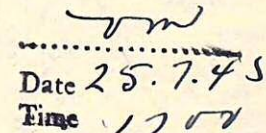 Date 25.7.45
Time 1700